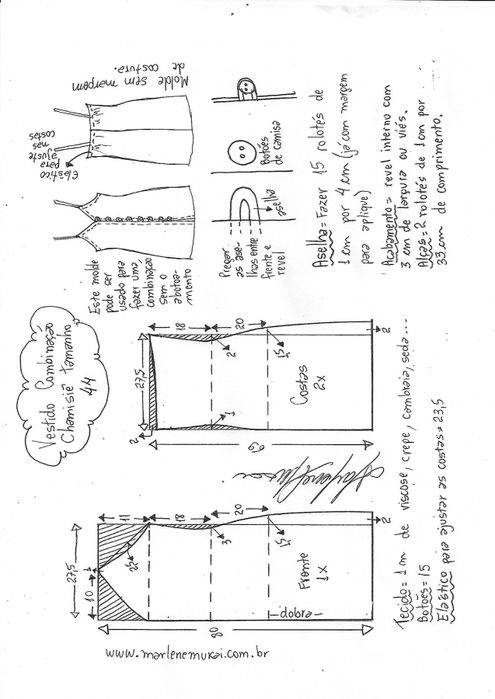 Vestido Combinação
Chamisiê tamanho
44
Este molde
pode ser
usado para
fazer uma
combinação
sem o
abotoa-
mento
Elástico
para
ajuste
nas
costas
Molde sem margem
de costura.
Prepare
as ase-
lhas entre
frente e
revel
aselha
Botões
de camisa
Aselha = Fazer 15 rolotês de
1 cm por 4 cm (já com margem
para aplique)
Acabamento = revel interno com
3 cm de largura ou viés.
Alças = 2 rolotês de 1 cm por
33 cm de comprimento.
27,5
18
20
2
1
2
1,5
2
Costas
2x
69
27,5
10
11
18
20
2,5
3
1,5
2
Frente
1x
dobra
80
www.marlenemukai.com.br
Tecido = 1 m de viscose, crepe, cambraia, seda...
Botões = 15
Elástico para ajustar as costas = 23,5